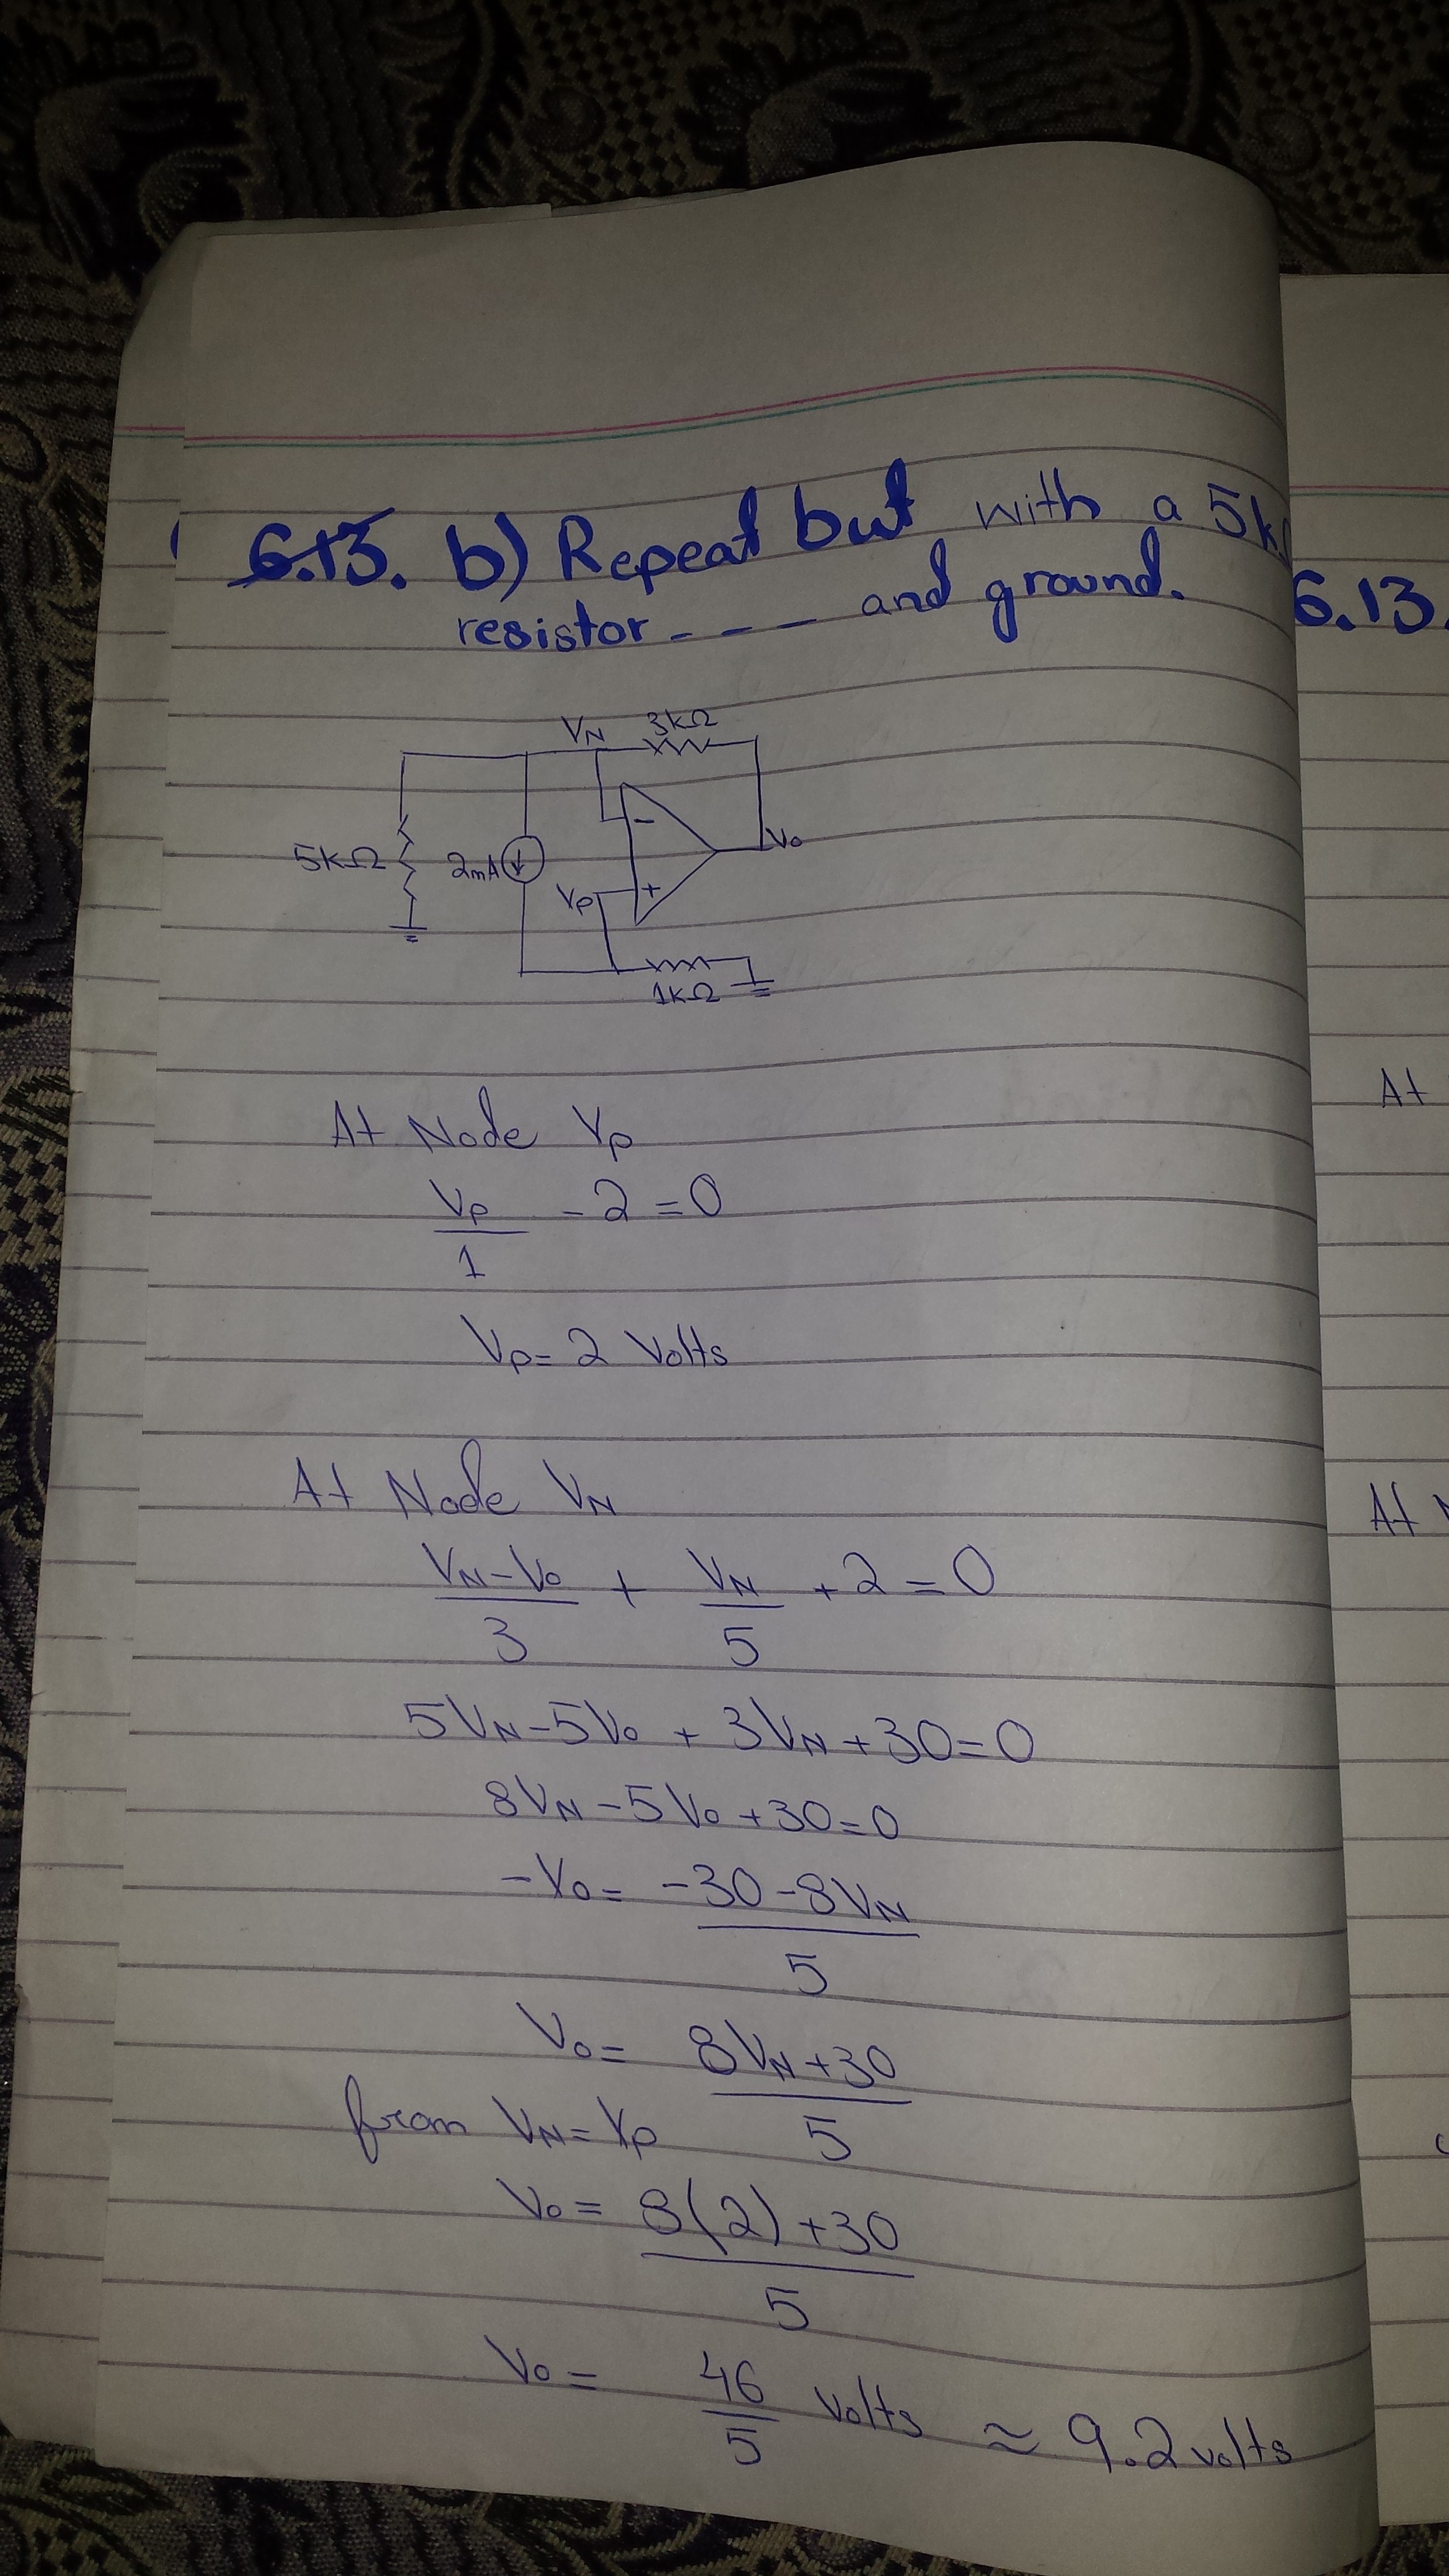 6.13. b) Repeat but with a 5k
resistor - - - and ground.
6.13.
VN 3kΩ
5kΩ 2mA - Vo
Vp +
1kΩ
At Node Vp
Vp/1 - 2 = 0
Vp = 2 Volts
At Node VN
(VN - Vo)/3 + VN/5 + 2 = 0
5VN - 5Vo + 3VN + 30 = 0
8VN - 5Vo + 30 = 0
-Vo = (-30 - 8VN)/5
Vo = (8VN + 30)/5
from VN = Vp
Vo = (8(2) + 30)/5
Vo = 46/5 volts ≈ 9.2 volts
At
At